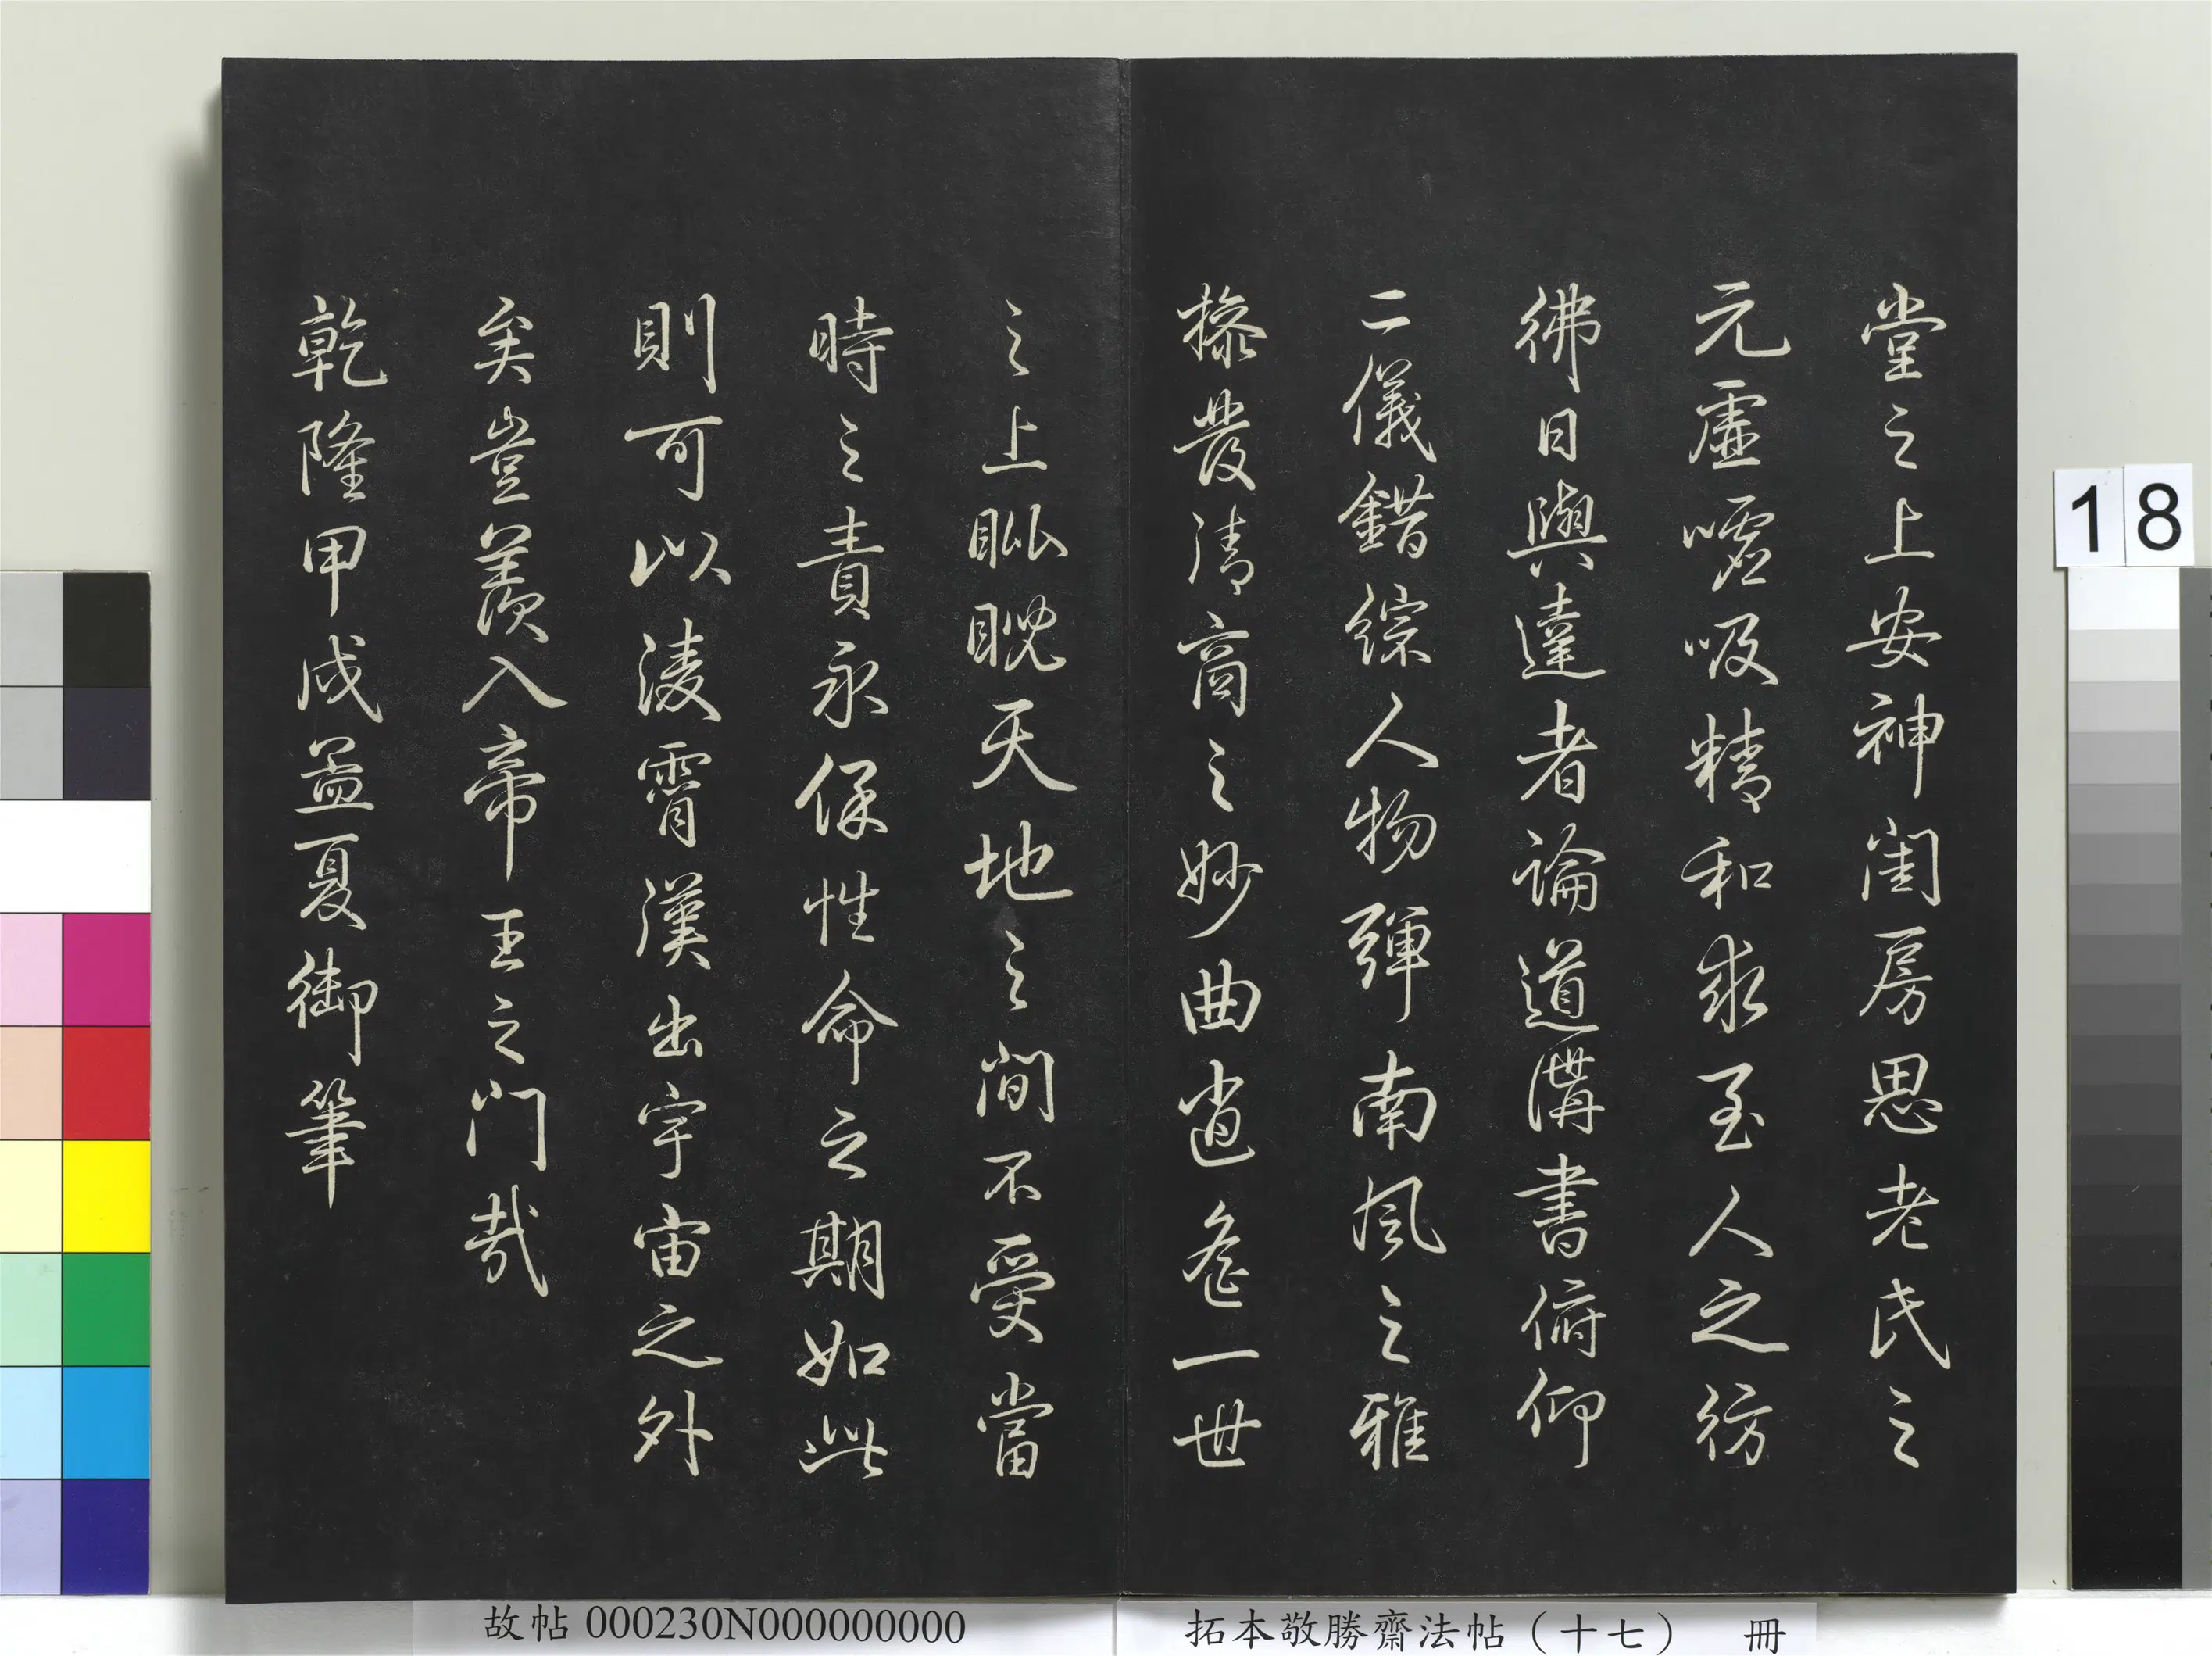 堂之上安神閨房思老氏之
元虛噓吸精和求至人之彷
彿日與達者論道講書俯仰
二儀錯綜人物彈南風之雅
操發清商之妙曲逍遙一世
之上睥睨天地之間不受當
時之責永保性命之期如此
則可以凌霄漢出宇宙之外
矣豈羨入帝王之門哉
乾隆甲戌孟夏御筆
18
故帖 000230N000000000
拓本敬勝齋法帖（十七） 冊